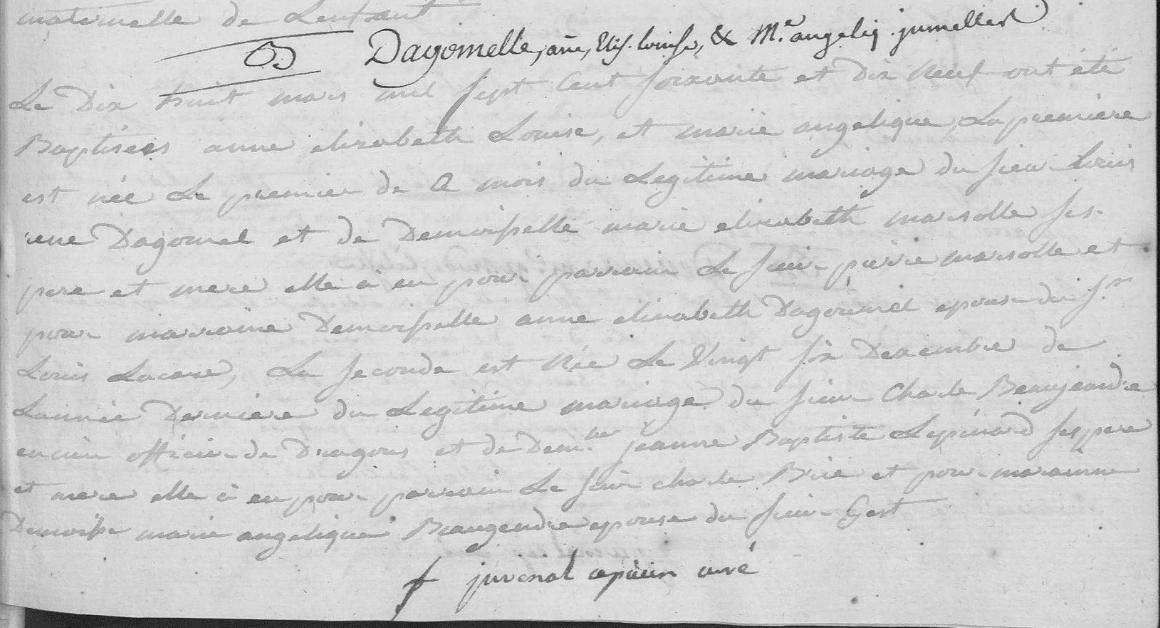 maternelle de Lenfant
B Dagomelle, ane, Elis. louise, & Me. angeliq jumelles
Le Dix huit mars mil sept Cent soixante et Dix Neuf ont été
Baptisees anne elizabeth Louise, et marie angelique, La premiere
est née Le premier de mois du Legitime mariage du sieur Louis
Dagomel et de Demoisselle marie elizabeth marsolle ses
pere et mere elle a eu pour parrain Le sieur pierre marsolle et
pour marraine Demoisselle anne elizabeth Dagomel epouse du sr
Louis Lacase, La seconde est Née Le Vingt six Decembre de
Lannée Derniere du Legitime mariage du sieur Charle Beaujeandre
encien officier de Dragons et de Demlle jeanne Baptiste Lepinard ses pere
et mere elle a eu pour parrain Le sieur charle Brie et pour maraine
Demoislle marie angelique Beaugendre epouse du sieur Gest
f juvenal capucin curé